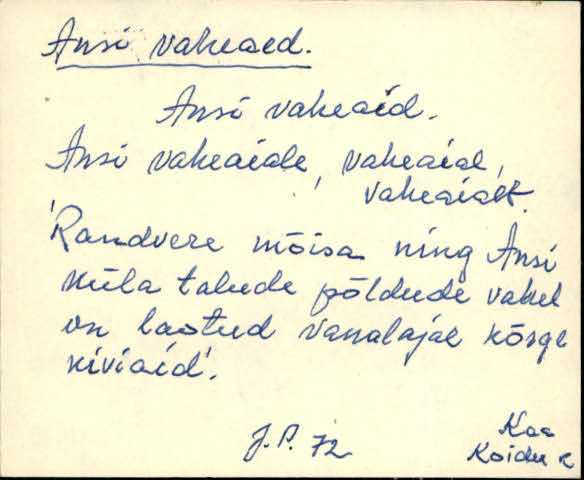 Ansi vaheaed.
Ansi vaheaid.
Ansi vaheaiale, vaheaial,
vaheaialt.
'Randvere mõisa ning Ansi
küla talude põldude vahel
on laotud vanalajal kõrge
kiviaid'.
J. P. 72
Kaa
Koidu k